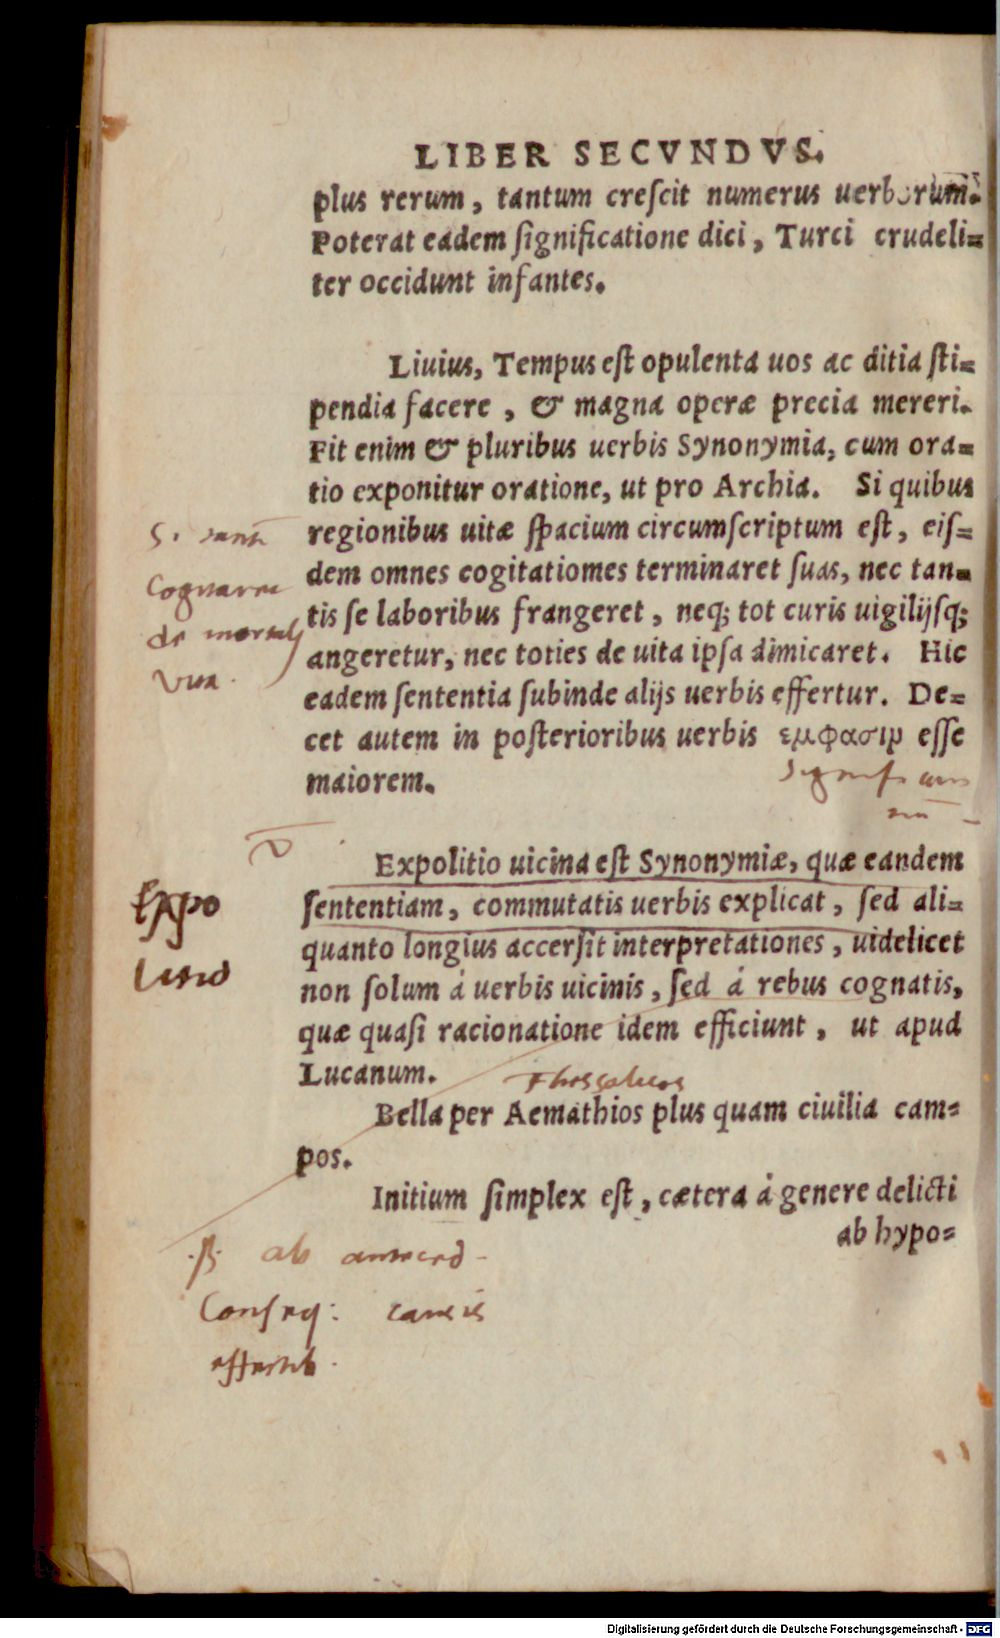 LIBER SECVNDVS.
plus rerum, tantum creſcit numerus uerborum.
Poterat eadem ſignificatione dici, Turci crudeli=
ter occidunt infantes.
Liuius, Tempus eſt opulenta uos ac ditia ſti=
pendia facere, & magna operæ precia mereri.
Fit enim & pluribus uerbis Synonymia, cum ora=
tio exponitur oratione, ut pro Archia. Si quibus
regionibus uitæ ſpacium circumſcriptum eſt, eiſ=
dem omnes cogitatiomes terminaret ſuas, nec tan=
tis ſe laboribus frangeret, neq; tot curis uigilijſq;
angeretur, nec toties de uita ipſa dimicaret. Hic
eadem ſententia ſubinde alijs uerbis effertur. De=
cet autem in poſterioribus uerbis εμφασιν eſſe
maiorem.
Expolitio uicina eſt Synonymiæ, quæ eandem
ſententiam, commutatis uerbis explicat, ſed ali=
quanto longius accerſit interpretationes, uidelicet
non ſolum á uerbis uicinis, ſed á rebus cognatis,
quæ quaſi racionatione idem efficiunt, ut apud
Lucanum.
Thessalicos
Bella per Aemathios plus quam ciuilia cam=
pos.
Initium ſimplex eſt, cætera á genere delicti
ab hypo=
Expo
litio
ab
Conſeq: causis
effectib.
Digitalisierung gefördert durch die Deutsche Forschungsgemeinschaft - DFG